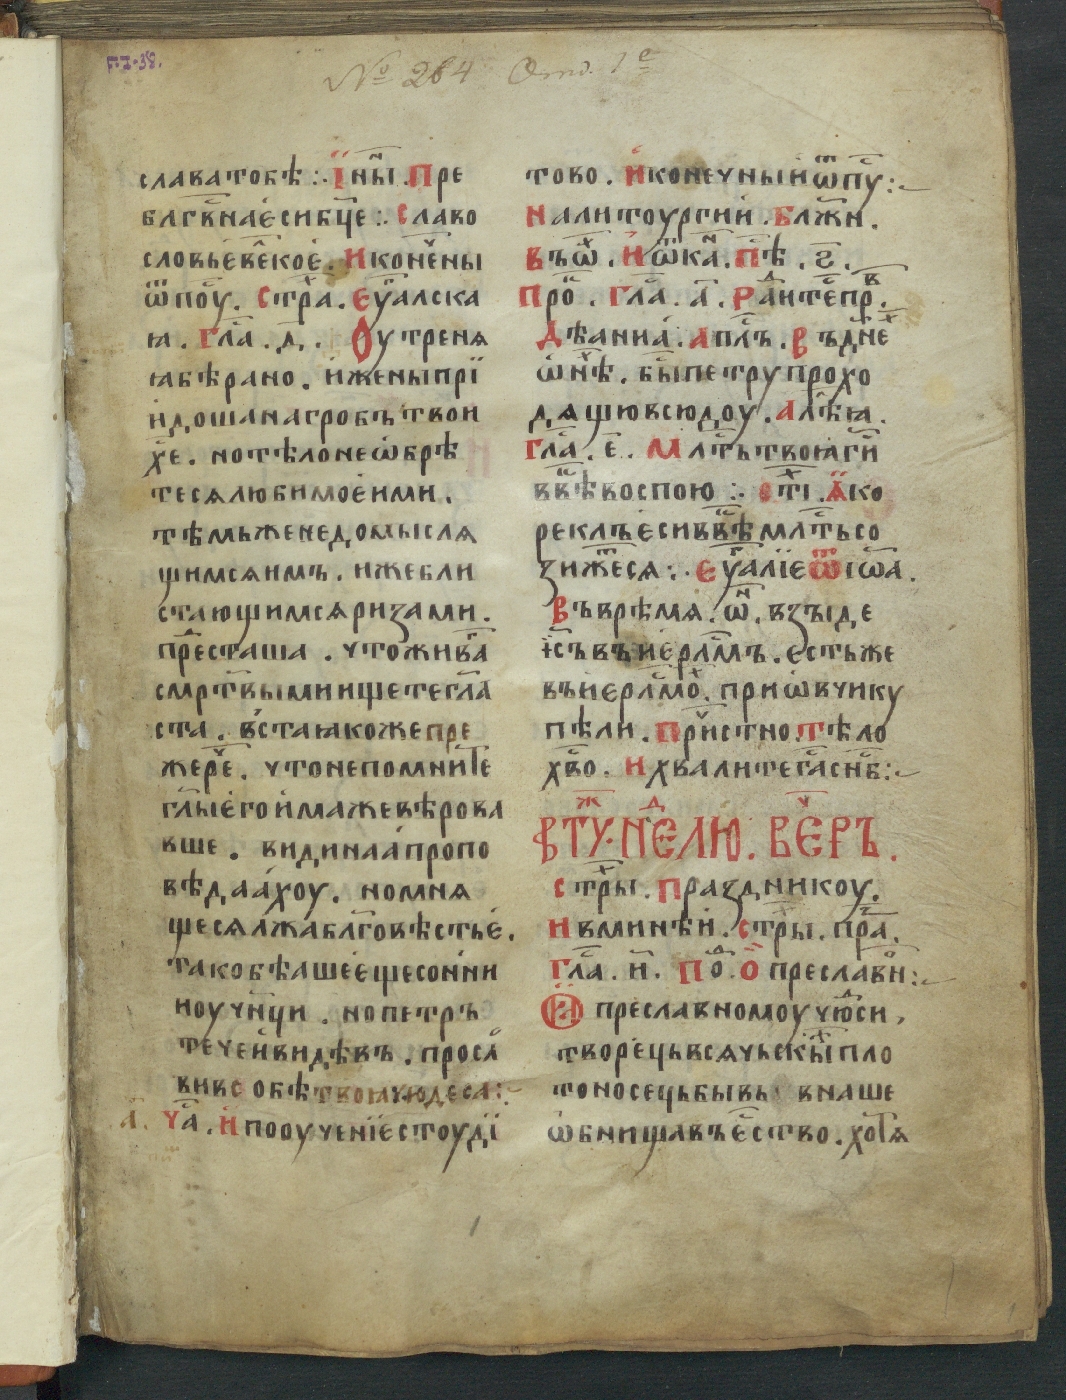 F.I.38.
№ 264 Отд. 1е
славатобѣ:. Їн҃ы. Пре
блг҃внаѐсибц҃е:. Славо
словьѐве҃кое. Иконеч҃ны
ѿпоу҃. Стр҃а. Еуа҃лска
ꙗ. Гла҃. д҃. Оутреня
ꙗбѣрано. ижены прї
идошанагробътвои
хе҃. нотѣлонеѡбрѣ
тесялюбимоеими.
тѣмьженедомысля
щимсяимъ. ижебли
стающимсяризами.
прⷣесташа. чтоживаг҃
смрт҃выми ищетегл҃а
ста. въстаꙗкожепре
жереч҃е. чтонепомните
глы҃егоимажевѣрова
вше. видинаапропо
вѣдаахоу. номня
щесялжаблг҃овѣстье.
такобѣашеещесонми
ноучн҃ци. нопетръ
течеивидѣвъ. просл҃
вивсобѣтвоꙗчюдеса:
а҃. Ча҃. Ипооученїестоудї
тово. Иконечныиѿпу҃:
Налитоургии. Блж҃н.
Въѡ҃. Иѿка҃. Пѣ҃. ѕ҃.
Про҃. Гла҃. а҃. Раⷣитепр҃в.
Дѣаниа. апл҃ъ. Въднѐ
ѡнѣ҃. бы҃петрупрохо
дящювсюдоу. Алѣ҃ꙗ.
Гла҃. е҃. Млт҃ьтвоꙗги҃
ввѣ҃квоспою:. стї҃. Ꙗко
реклъесивввѣ҃млт҃ьсо
зижет҃еся:. Еуа҃лїеѿіѡа҃.
Въврѣмя. ѡ҃н. взъіде
іс҃ъвъиерлм҃ъ. естьже
въиерлм҃о. приѡвчику
пѣли. Прич҃стно. Тѣло
хв҃о. Ихвалитега҃снб҃:
ВТУ҃ЖНЕДⷣЕЛЮ. ВЕЧ҃РЪ.
Стр҃ы. Праздникоу.
Ивминѣи. Стр҃ы. пра҃.
Гла҃. и҃. По҃д. О преславн҃:
О преславномоучюⷣси,
творецьвсячьскы҃хпло
тоносецьбывь внаше
ѡбнищавъе҃ство. хотя